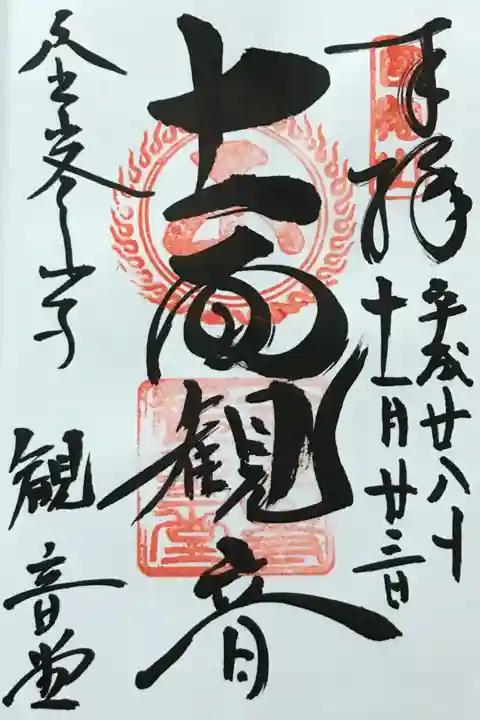 奉拝
国軸山
平成廿八年
十一月廿三日
十一面観音
金峯山寺
観音堂